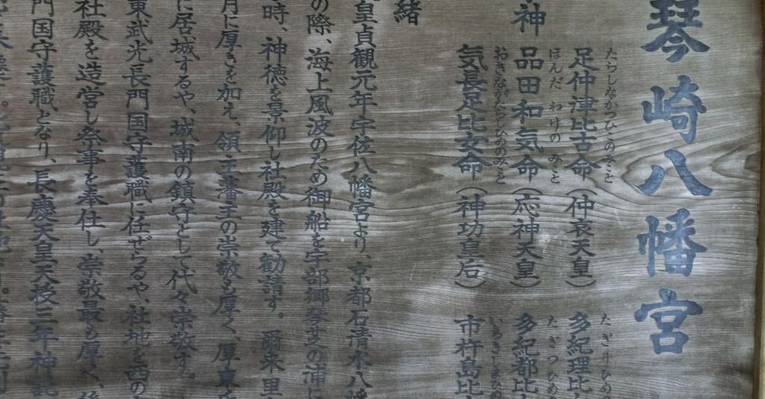 琴崎八幡宮
足仲津比古命(仲哀天皇) 多紀理比
たらしなかつひこのみこと たぎりひめ
神 品田和気命(応神天皇) 多紀都比
ほんだ わけの みこと たぎつひめ
気長足比女命(神功皇后) 市杵島比
緒
皇貞観元年宇佐八幡宮より、京都石清水八幡
の際、海上風波のため御船を宇部郷
の浦に
時、神徳を景仰し社殿を建て勧請す。爾来里
月に厚きを加え、領主藩主の崇敬も厚く、厚
に居城するや、城南の鎮守として代々崇敬す。
東武光長門国守護職に任ぜらるや、社地を西の
社殿を造営し祭事を奉仕し、崇敬最も厚く、
門国守護職となり、長慶天皇天授三年神託